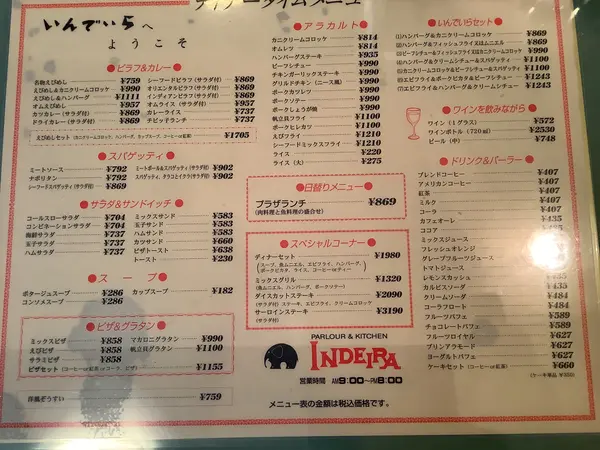 ディナータイムメニュー
いんでいらへ
ようこそ
ピラフ&カレー
名物えびめし ¥759
えびめし&カニクリームコロッケ ¥990
えびめし&ハンバーグ ¥1111
オムえびめし ¥957
カツカレー(サラダ付) ¥869
ドライカレー(サラダ付) ¥869
シーフードピラフ(サラダ付) ¥869
オリエンタルピラフ(サラダ付) ¥869
インディアンピラフ(サラダ付) ¥869
オムライス(サラダ付) ¥957
カレーライス ¥737
チビッ子ランチ ¥737
えびめしセット(カニクリームコロッケ、ハンバーグ、カップスープ、コーヒーor紅茶) ¥1705
スパゲッティ
ミートソース ¥792
ナポリタン ¥792
シーフードスパゲッティ(サラダ付) ¥869
ミートボール&スパゲッティ(サラダ付) ¥902
スパゲッティ、タラコとイクラ(サラダ付) ¥902
サラダ&サンドイッチ
コールスローサラダ ¥704
コンビネーションサラダ ¥704
海鮮サラダ ¥737
玉子サラダ ¥737
ハムサラダ ¥737
ミックスサンド ¥583
玉子サンド ¥583
ハムサンド ¥583
カツサンド ¥660
ピザトースト ¥638
トースト ¥230
スープ
ポタージュスープ ¥286
コンソメスープ ¥286
カップスープ ¥182
ピザ&グラタン
ミックスピザ ¥858
えびピザ ¥858
サラミピザ ¥858
マカロニグラタン ¥990
帆立貝グラタン ¥1100
ピザセット(コーヒーor紅茶orコーラ、ピザ) ¥1155
洋風ぞうすい ¥759
アラカルト
カニクリームコロッケ ¥814
オムレツ ¥814
ハンバーグステーキ ¥935
ビーフシチュー ¥990
チキンガーリックステーキ ¥990
グリルドチキン(ニース風) ¥990
ポークカツレツ ¥990
ポークソテー ¥990
ポークしょうが焼 ¥990
帆立貝フライ ¥1100
ポークヒレカツ ¥1100
えびフライ ¥1210
シーフードミックスフライ ¥1210
ライス ¥220
ライス(大) ¥275
日替りメニュー
プラザランチ ¥869
(肉料理と魚料理の盛合せ)
スペシャルコーナー
ディナーセット ¥1980
(スープ、魚ムニエル、エビフライ、ハンバーグ、
ポークピカタ、ライス、コーヒーorティー)
ミックスグリル ¥1320
(魚ムニエル、ハンバーグ、ポークソテー)
ダイスカットステーキ ¥2090
(サラダ付)ステーキ、エビフライ、クリームコロッケ
サーロインステーキ ¥3190
(サラダ付)
PARLOUR & KITCHEN
INDEIRA
営業時間 AM9:00〜PM8:00
メニュー表の金額は税込価格です。
いんでいらセット
(1)ハンバーグ&カニクリームコロッケ ¥869
(2)ハンバーグ&フィッシュフライ又はムニエル ¥869
(3)ビーフシチュー&フィッシュフライ又はカニクリームコロッケ ¥990
(4)ハンバーグ&クリームシチュー&スパゲッティ ¥1100
(5)カニクリームコロッケ&ビーフシチュー&スパゲッティ ¥1100
(6)エビフライ&ポークピカタ&クリームシチュー ¥1243
(7)エビフライ&ポークピカタ&ビーフシチュー ¥1243
ワインを飲みながら
ワイン(1グラス) ¥572
ワインボトル(720ml) ¥2530
ビール(中) ¥748
ドリンク&パーラー
ブレンドコーヒー ¥407
アメリカンコーヒー ¥407
紅茶 ¥407
ミルク ¥407
コーラ ¥407
カフェオーレ ¥435
ココア ¥435
ミックスジュース
フレッシュオレンジ
グレープフルーツジュース
トマトジュース
レモンスカッシュ
カルピスソーダ
クリームソーダ ¥484
コーラフロート ¥484
フルーツパフェ ¥589
チョコレートパフェ ¥589
フルーツロイヤル ¥627
プリンアラモード ¥627
ヨーグルトパフェ ¥627
ケーキセット(コーヒーor紅茶) ¥660